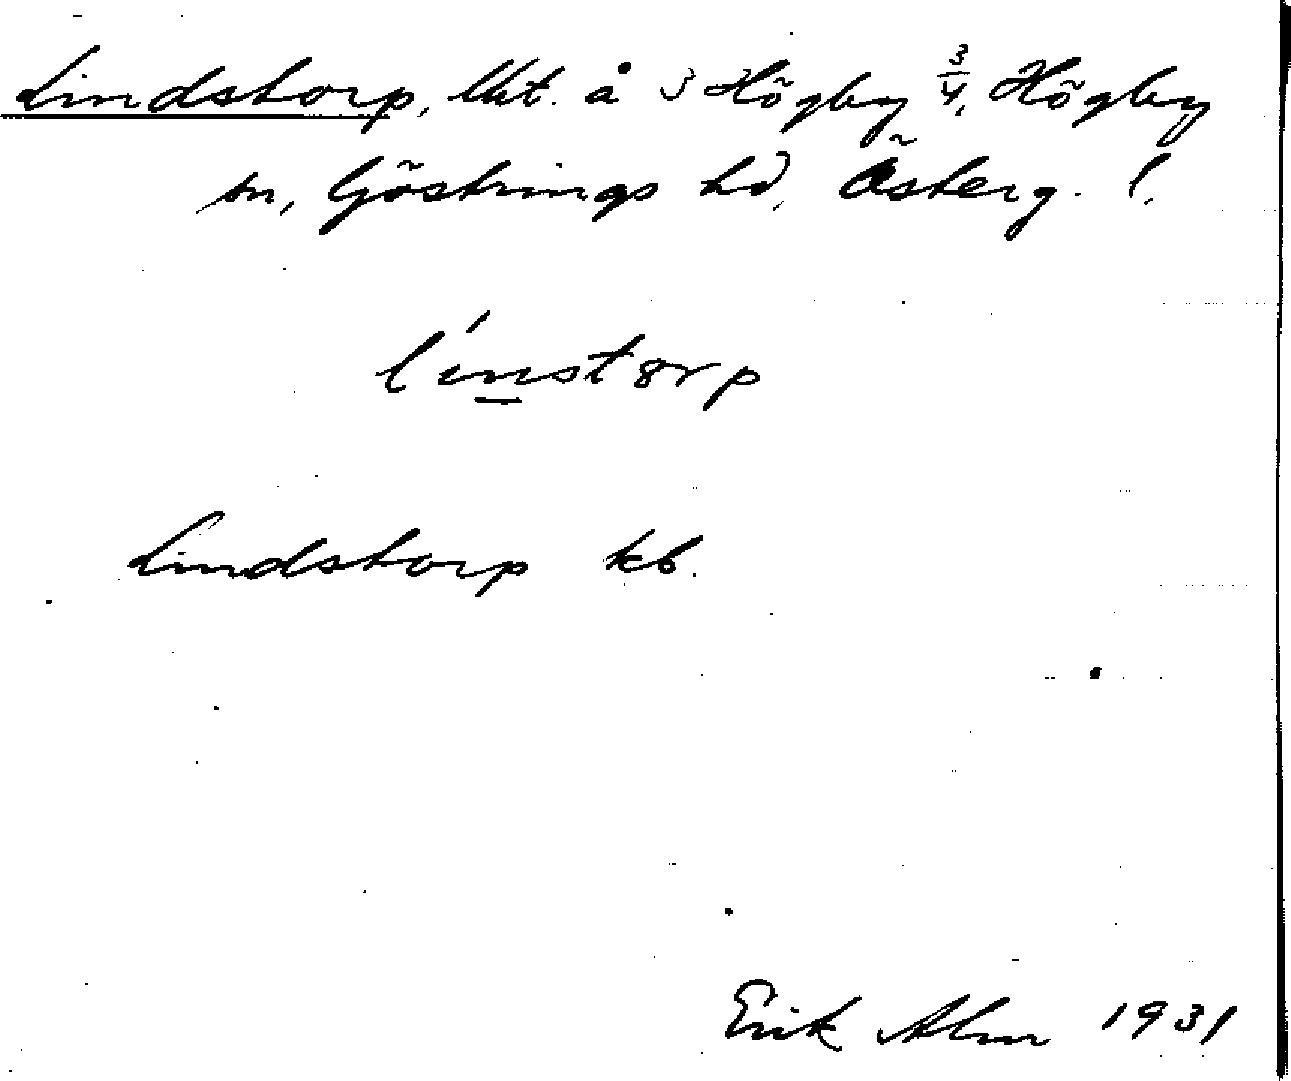 Lindstorp, lht. å 3 Högby 3/4, Högby
sn, Göstrings hd, Österg. l.
línstorp
Lindstorp kb.
Erik Alm 1931